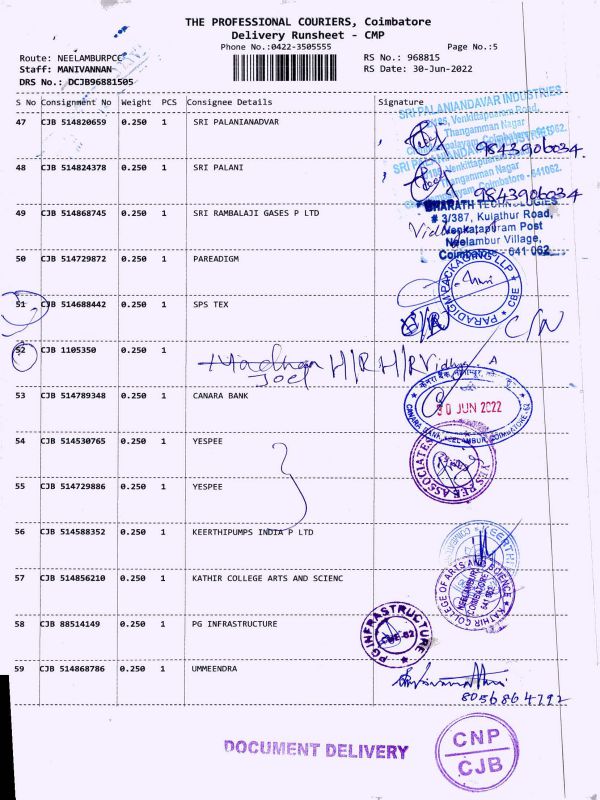 THE PROFESSIONAL COURIERS, Coimbatore
Delivery Runsheet - CMP
Phone No.:0422-3505555
Page No.:5
Route: NEELAMBURPCC
RS No.: 968815
Staff: MANIVANNAN
RS Date: 30-Jun-2022
DRS No.: DCJB96881505
S No Consignment No Weight PCS Consignee Details Signature
SRI PALANIANDAVAR INDUSTRIES
Venkittapuram Road,
Thangamman Nagar
47 CJB 514820659 0.250 1 SRI PALANIANADVAR
9843906034.
48 CJB 514824378 0.250 1 SRI PALANI
Thangamman Nagar
Coimbatore - 641062.
9843906034
BHARATH TECHNOLOGIES
49 CJB 514868745 0.250 1 SRI RAMBALAJI GASES P LTD
# 3/387, Kulathur Road,
Venkatapuram Post
Neelambur Village,
Coimbatore - 641 062.
50 CJB 514729872 0.250 1 PAREADIGM
PARADIGM PACKAGING LLP CBE
51 CJB 514688442 0.250 1 SPS TEX
C/N
52 CJB 1105350 0.250 1
Madhan H/R H/R Vidhya. A
Joel
53 CJB 514789348 0.250 1 CANARA BANK
30 JUN 2022
CANARA BANK, NEELAMBUR, COIMBATORE-62
54 CJB 514530765 0.250 1 YESPEE
ASSOCIATES
55 CJB 514729886 0.250 1 YESPEE
56 CJB 514588352 0.250 1 KEERTHIPUMPS INDIA P LTD
KEERTHI
57 CJB 514856210 0.250 1 KATHIR COLLEGE ARTS AND SCIENC
KATHIR COLLEGE OF ARTS AND SCIENCE
NEELAMBUR
COIMBATORE
641 062
58 CJB 88514149 0.250 1 PG INFRASTRUCTURE
PG INFRASTRUCTURE
CBE-62
59 CJB 514868786 0.250 1 UMMEENDRA
8056864792
DOCUMENT DELIVERY
CNP
CJB